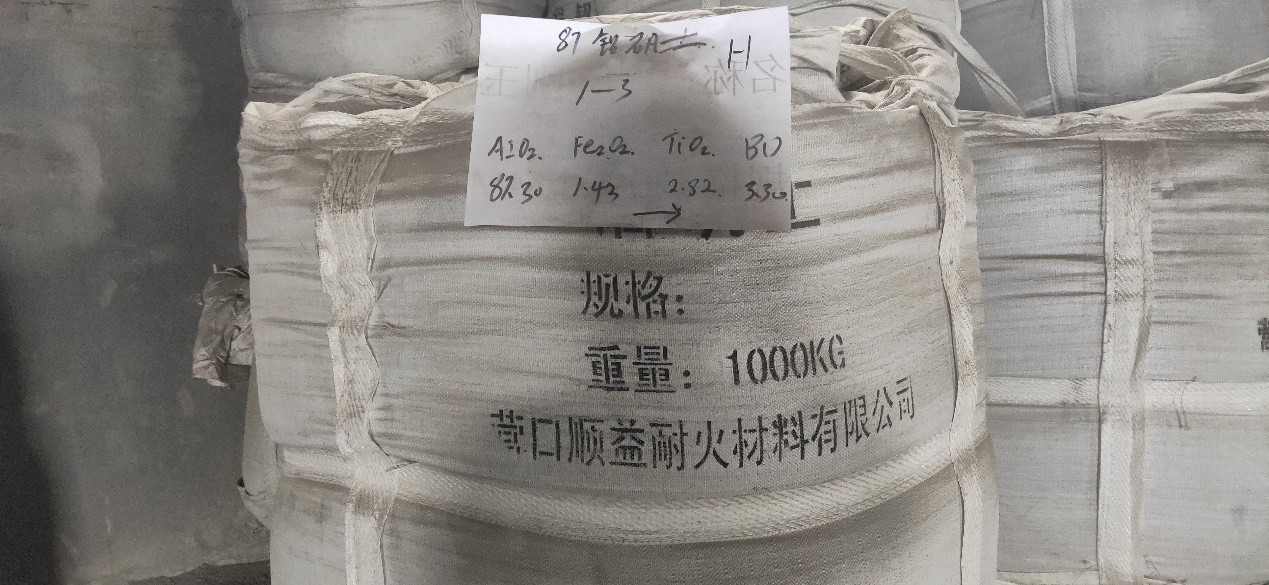 87 铝矾土 H
1-3
Al2O2. Fe2O2. TiO2. BD
87.30 1.43 2.82. 3.30.
→
规格:
重量: 1000KG
营口顺益耐火材料有限公司